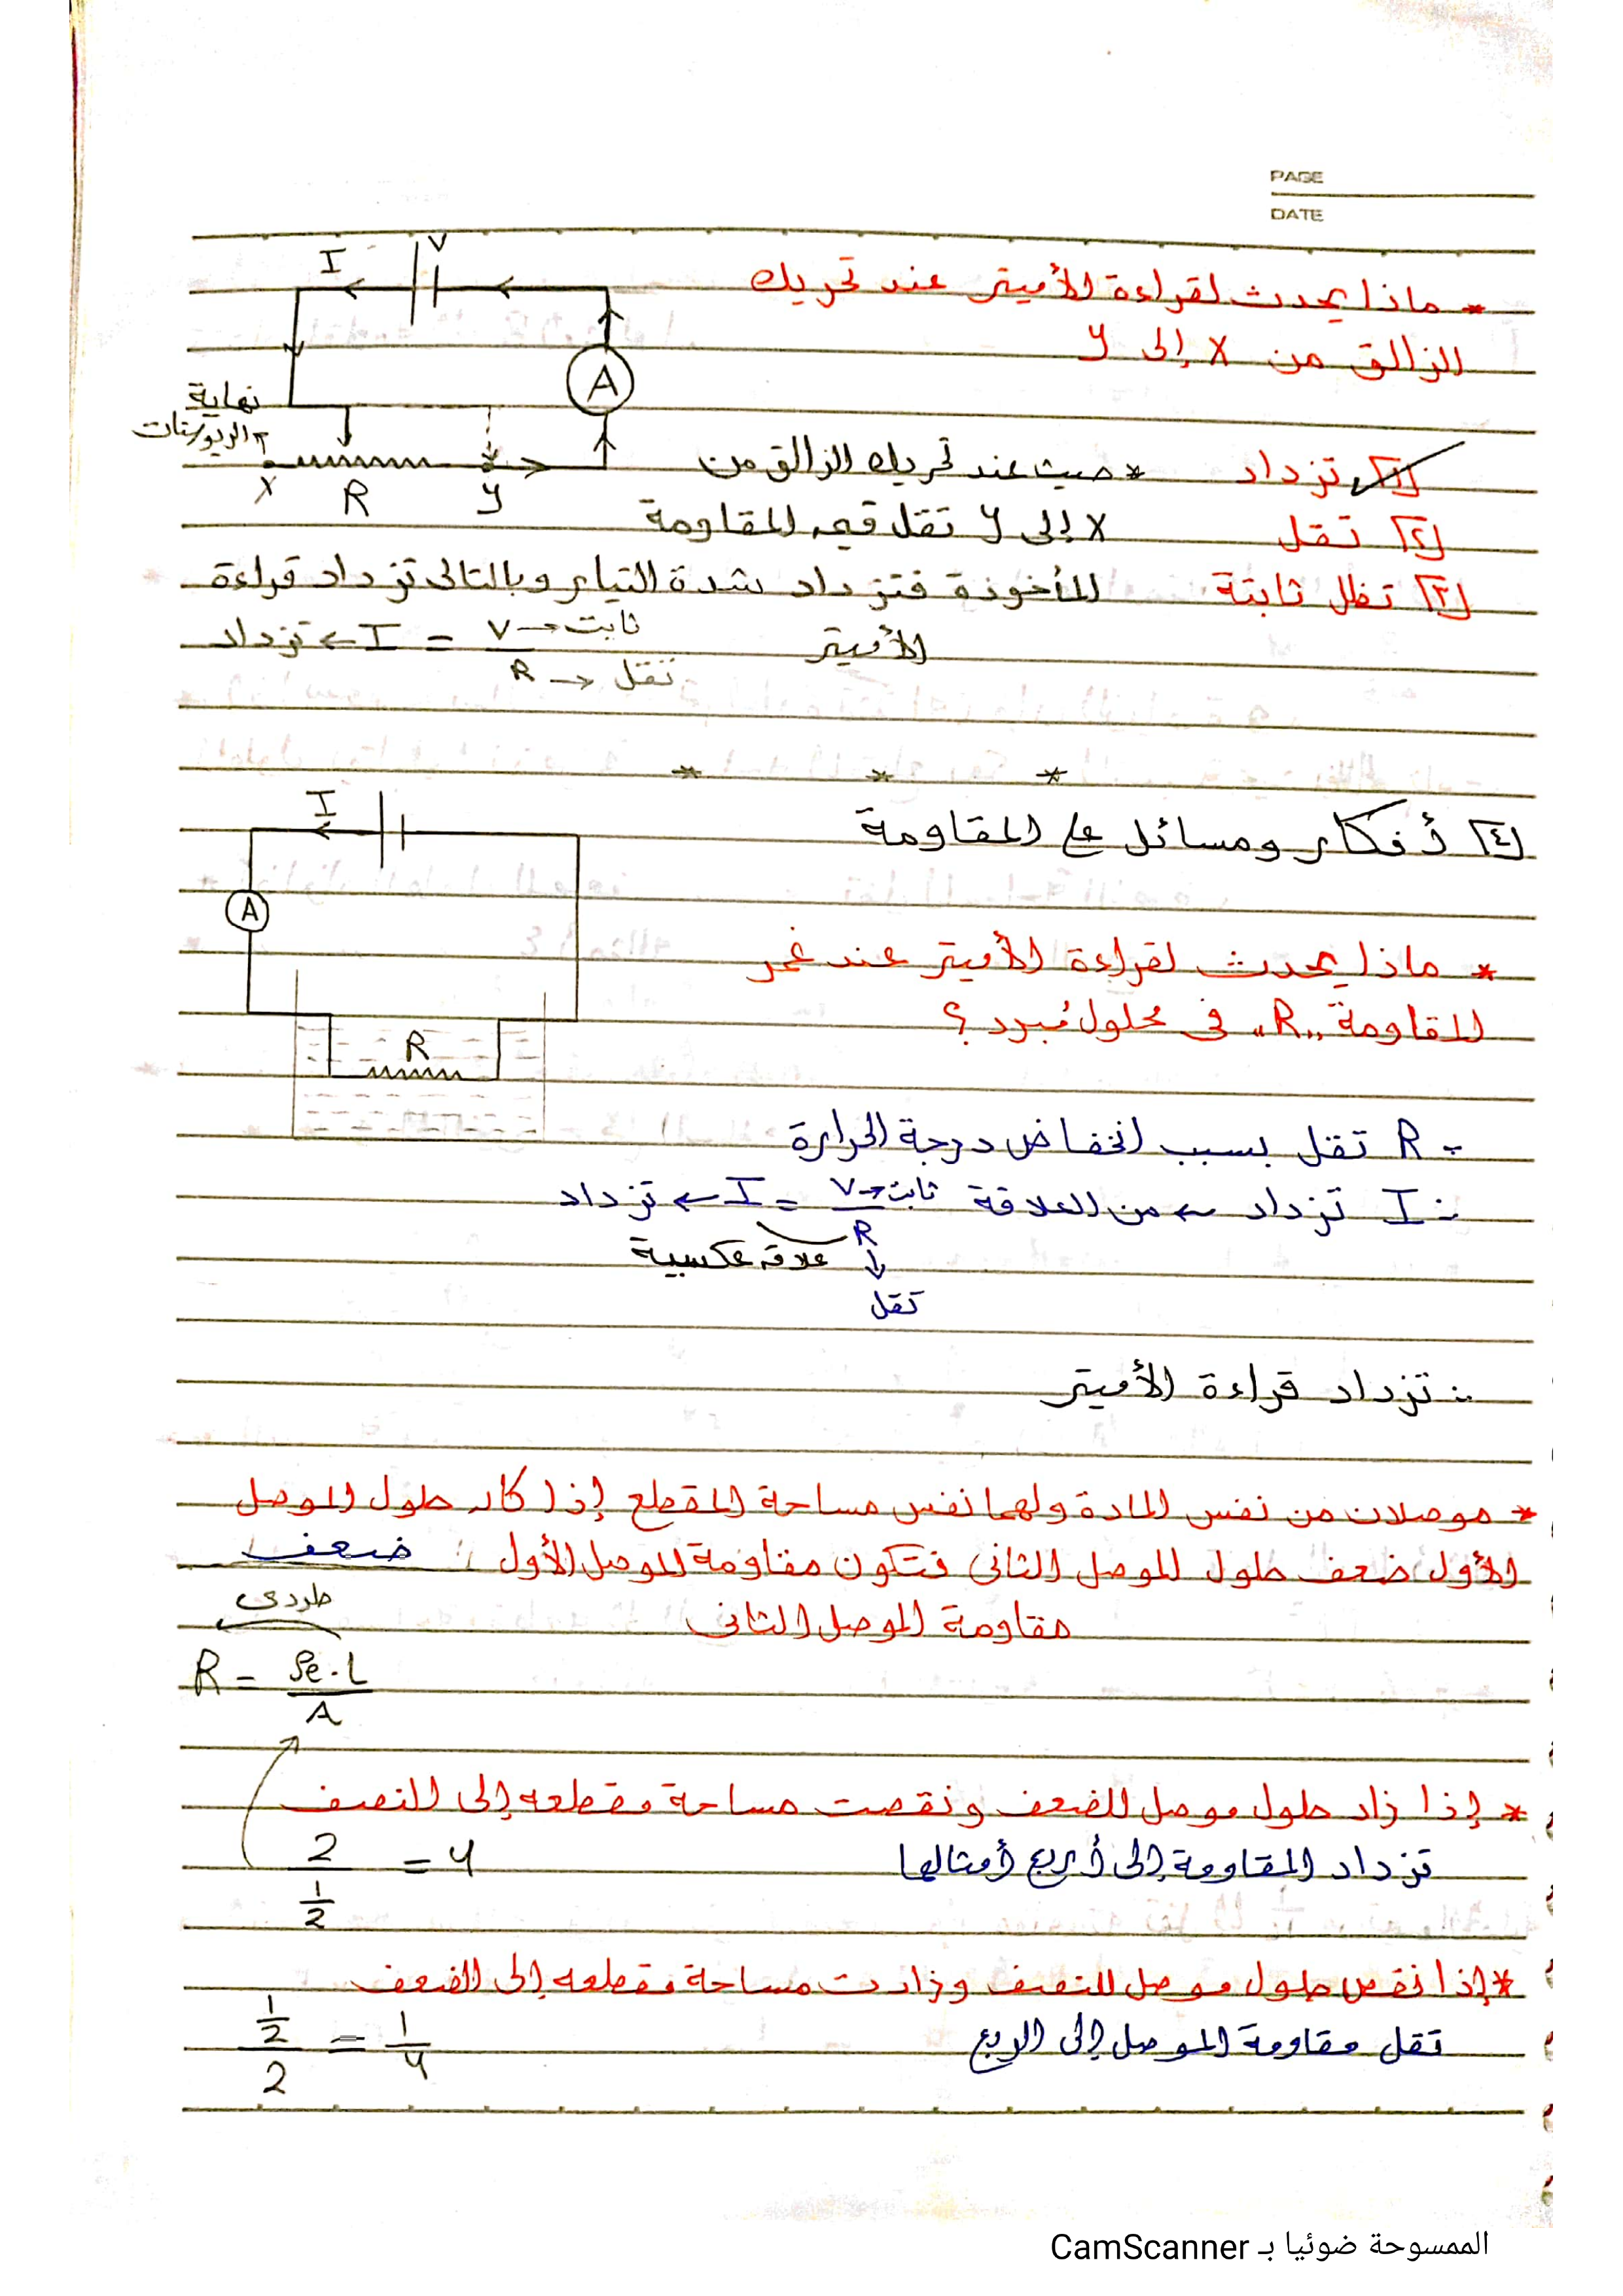 PAGE
DATE
* ماذا يحدث لقراءة الأميتر عند تحريك
الزالق من X إلى y
I V
A
نهاية
الريوستات
X R y
[١] تزداد * حيث عند تحريك الزالق من
[٢] تقل X إلى y تقل قيمه المقاومة
[٣] تظل ثابتة المأخوذة فتزداد شدة التيار وبالتالى تزداد قراءة
الأميتر تزداد ← I = V → ثابت
R → تقل
* * *
[٤] أفكار ومسائل على المقاومة
I
A
* ماذا يحدث لقراءة الأميتر عند غمر
المقاومة "R" فى محلول مُبرد ؟
R
∴ R تقل بسبب انخفاض درجة الحرارة
∴ I تزداد ← من العلاقة تزداد ← I = V → ثابت
R
علاقه عكسية ↓
تقل
∴ تزداد قراءة الأميتر
* موصلان من نفس المادة ولهما نفس مساحة المقطع إذا كان طول الموصل
الأول ضعف طول الموصل الثانى فتكون مقاومة الموصل الأول : ضعف
مقاومة الموصل الثانى
طردى
R = ρe.L
A
* إذا زاد طول موصل للضعف ونقصت مساحة مقطعه إلى النصف
تزداد المقاومة إلى أربع أمثالها 2 = 4
1/2
* إذا نقص طول موصل للنصف وزادت مساحة مقطعه إلى الضعف
تقل مقاومة الموصل إلى الربع 1/2 = 1/4
2
الممسوحة ضوئيا بـ CamScanner